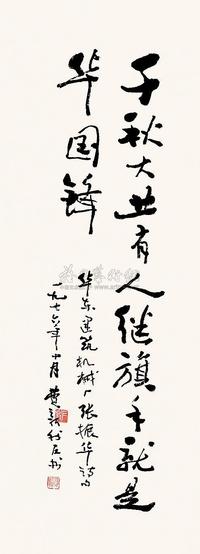 千秋大业有人继旗手就是
华国锋
华东建筑机械厂张振华诗句
一九七六年十月 费新我左书